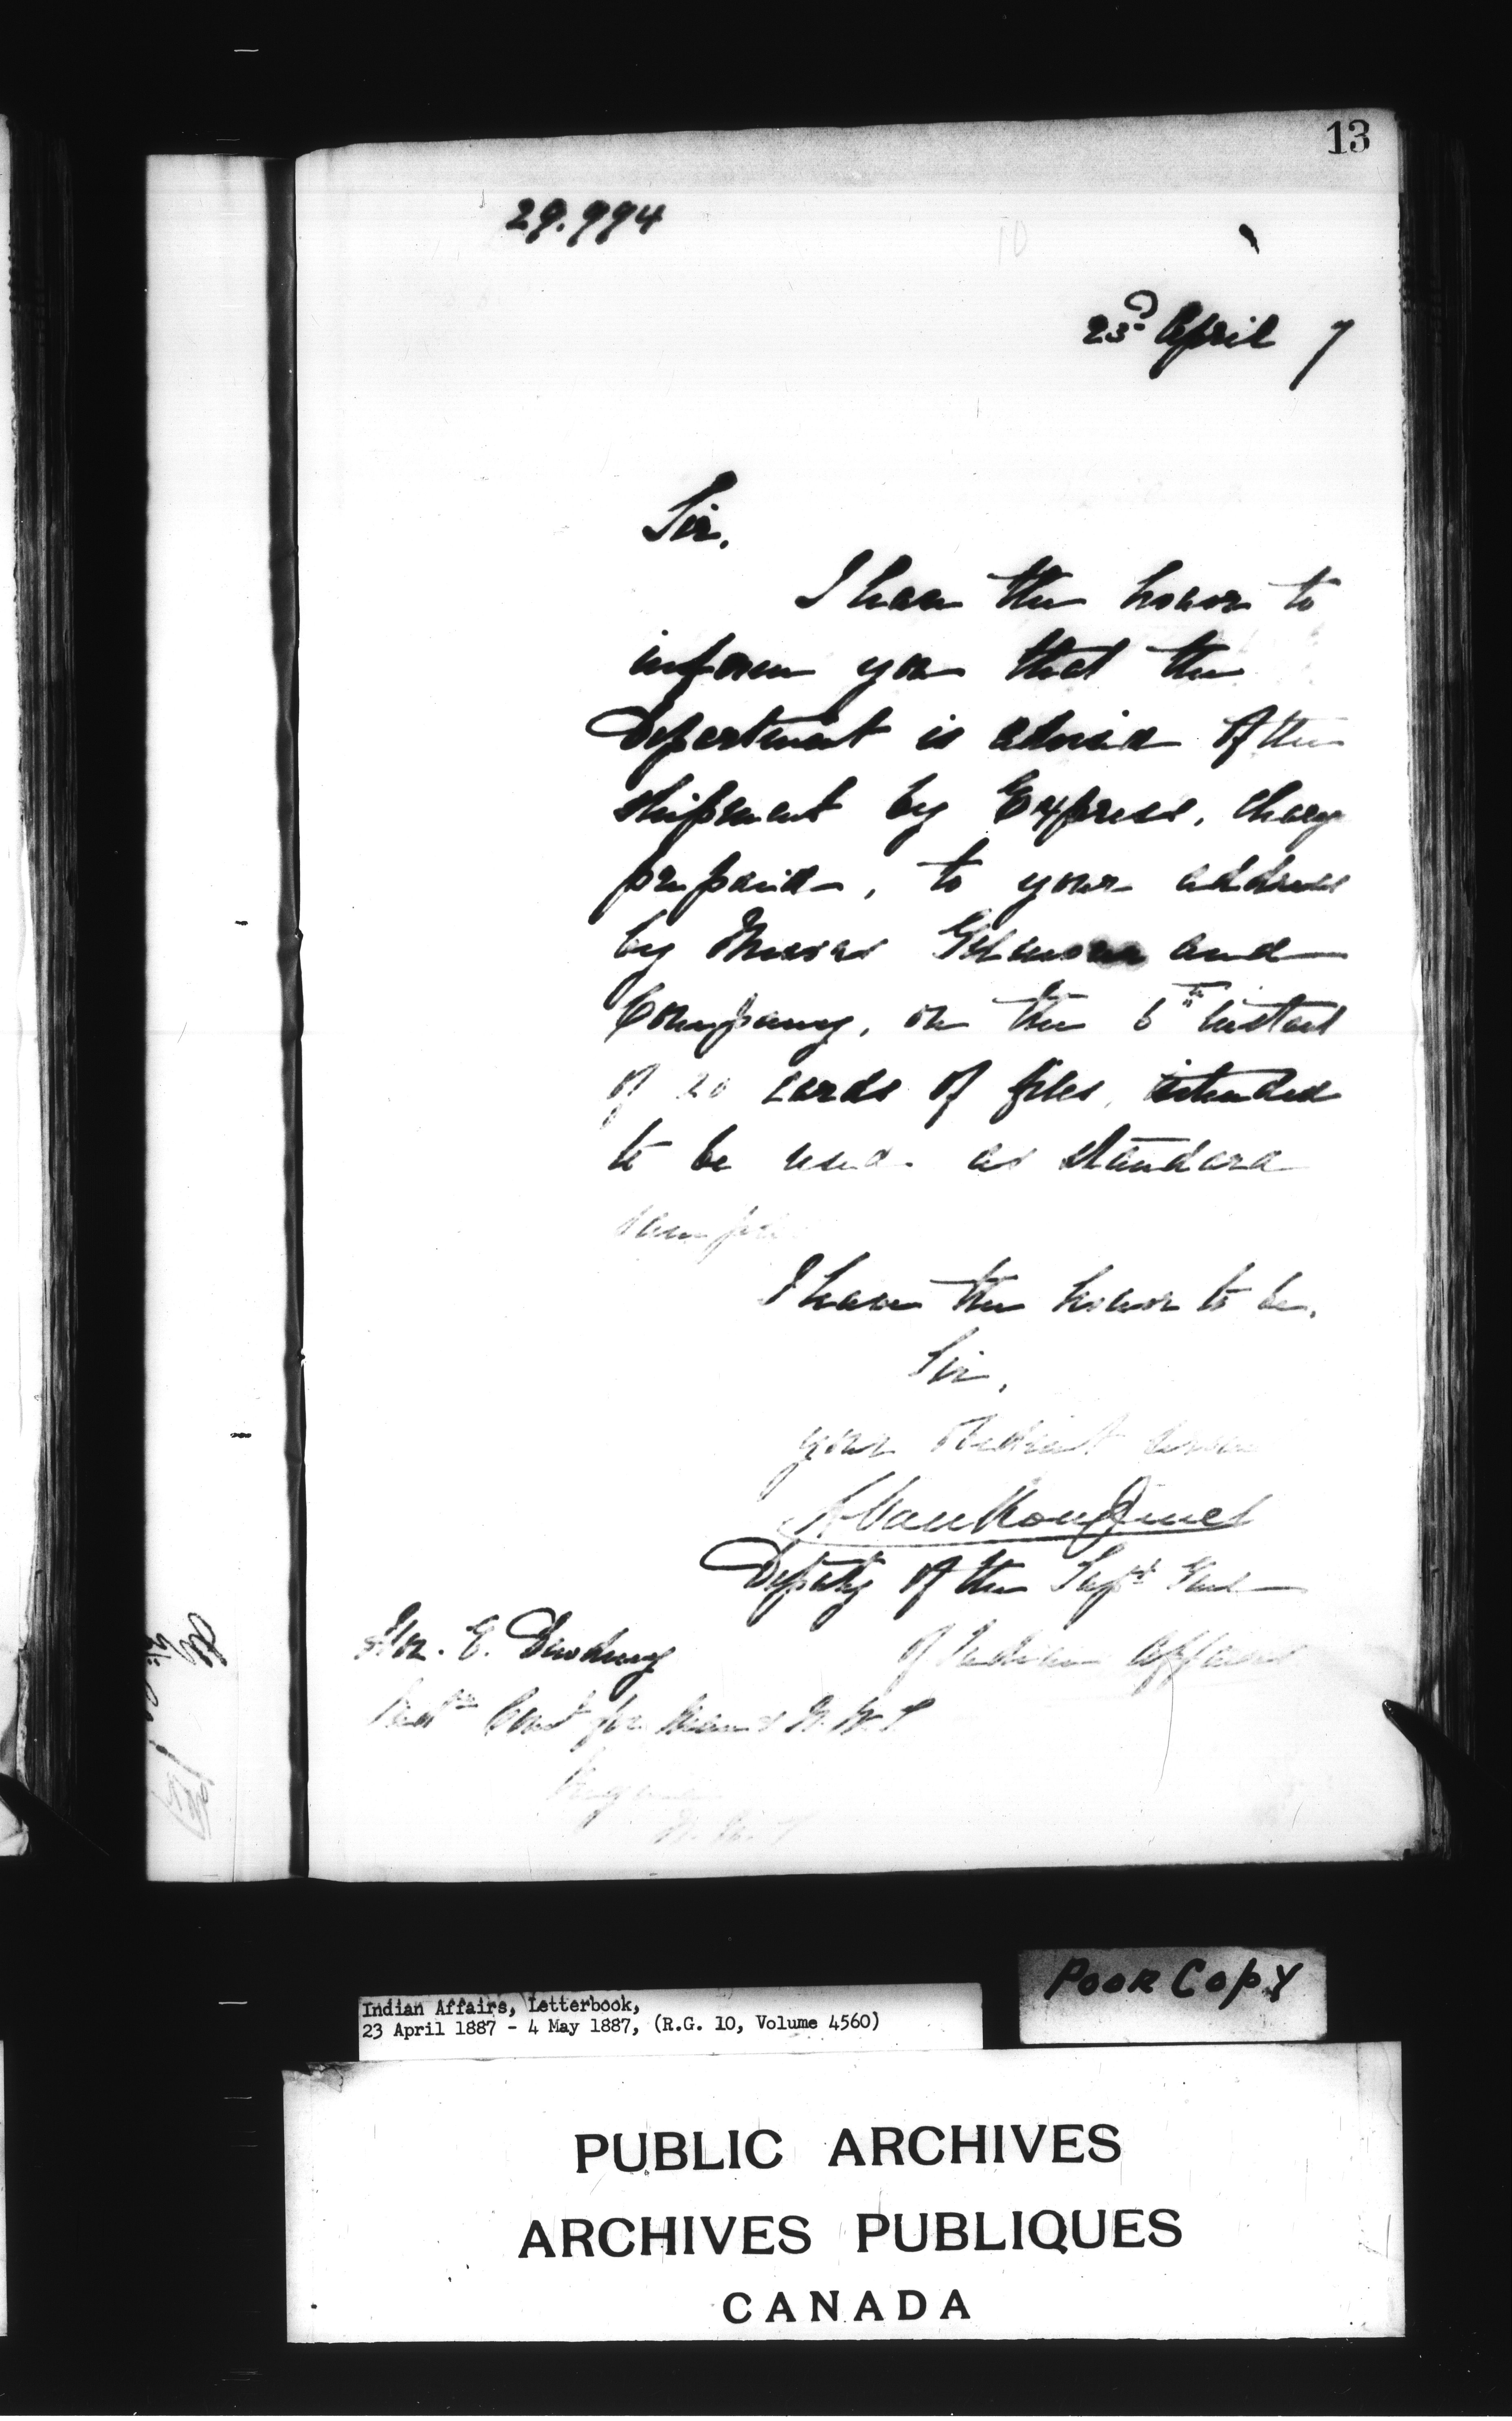 13
29.994
23rd April 7
Sir,
I have the honor to
inform you that the
Department is advised of the
shipment by Express, charges
prepaid, to your address
by Messrs and
Company, on the 6th instant
of 20 cards of files, intended
to be used as standard
samples
I have the honor to be,
Sir,
your obedient servant
L Vankoughnet
Deputy of the Supt Genl
of Indian Affairs
Hon. E. Dewdney
Indn Comr for Man & N.W.T
Regina
N.W.T
POOR COPY
Indian Affairs, Letterbook,
23 April 1887 - 4 May 1887, (R.G. 10, Volume 4560)
PUBLIC ARCHIVES
ARCHIVES PUBLIQUES
CANADA